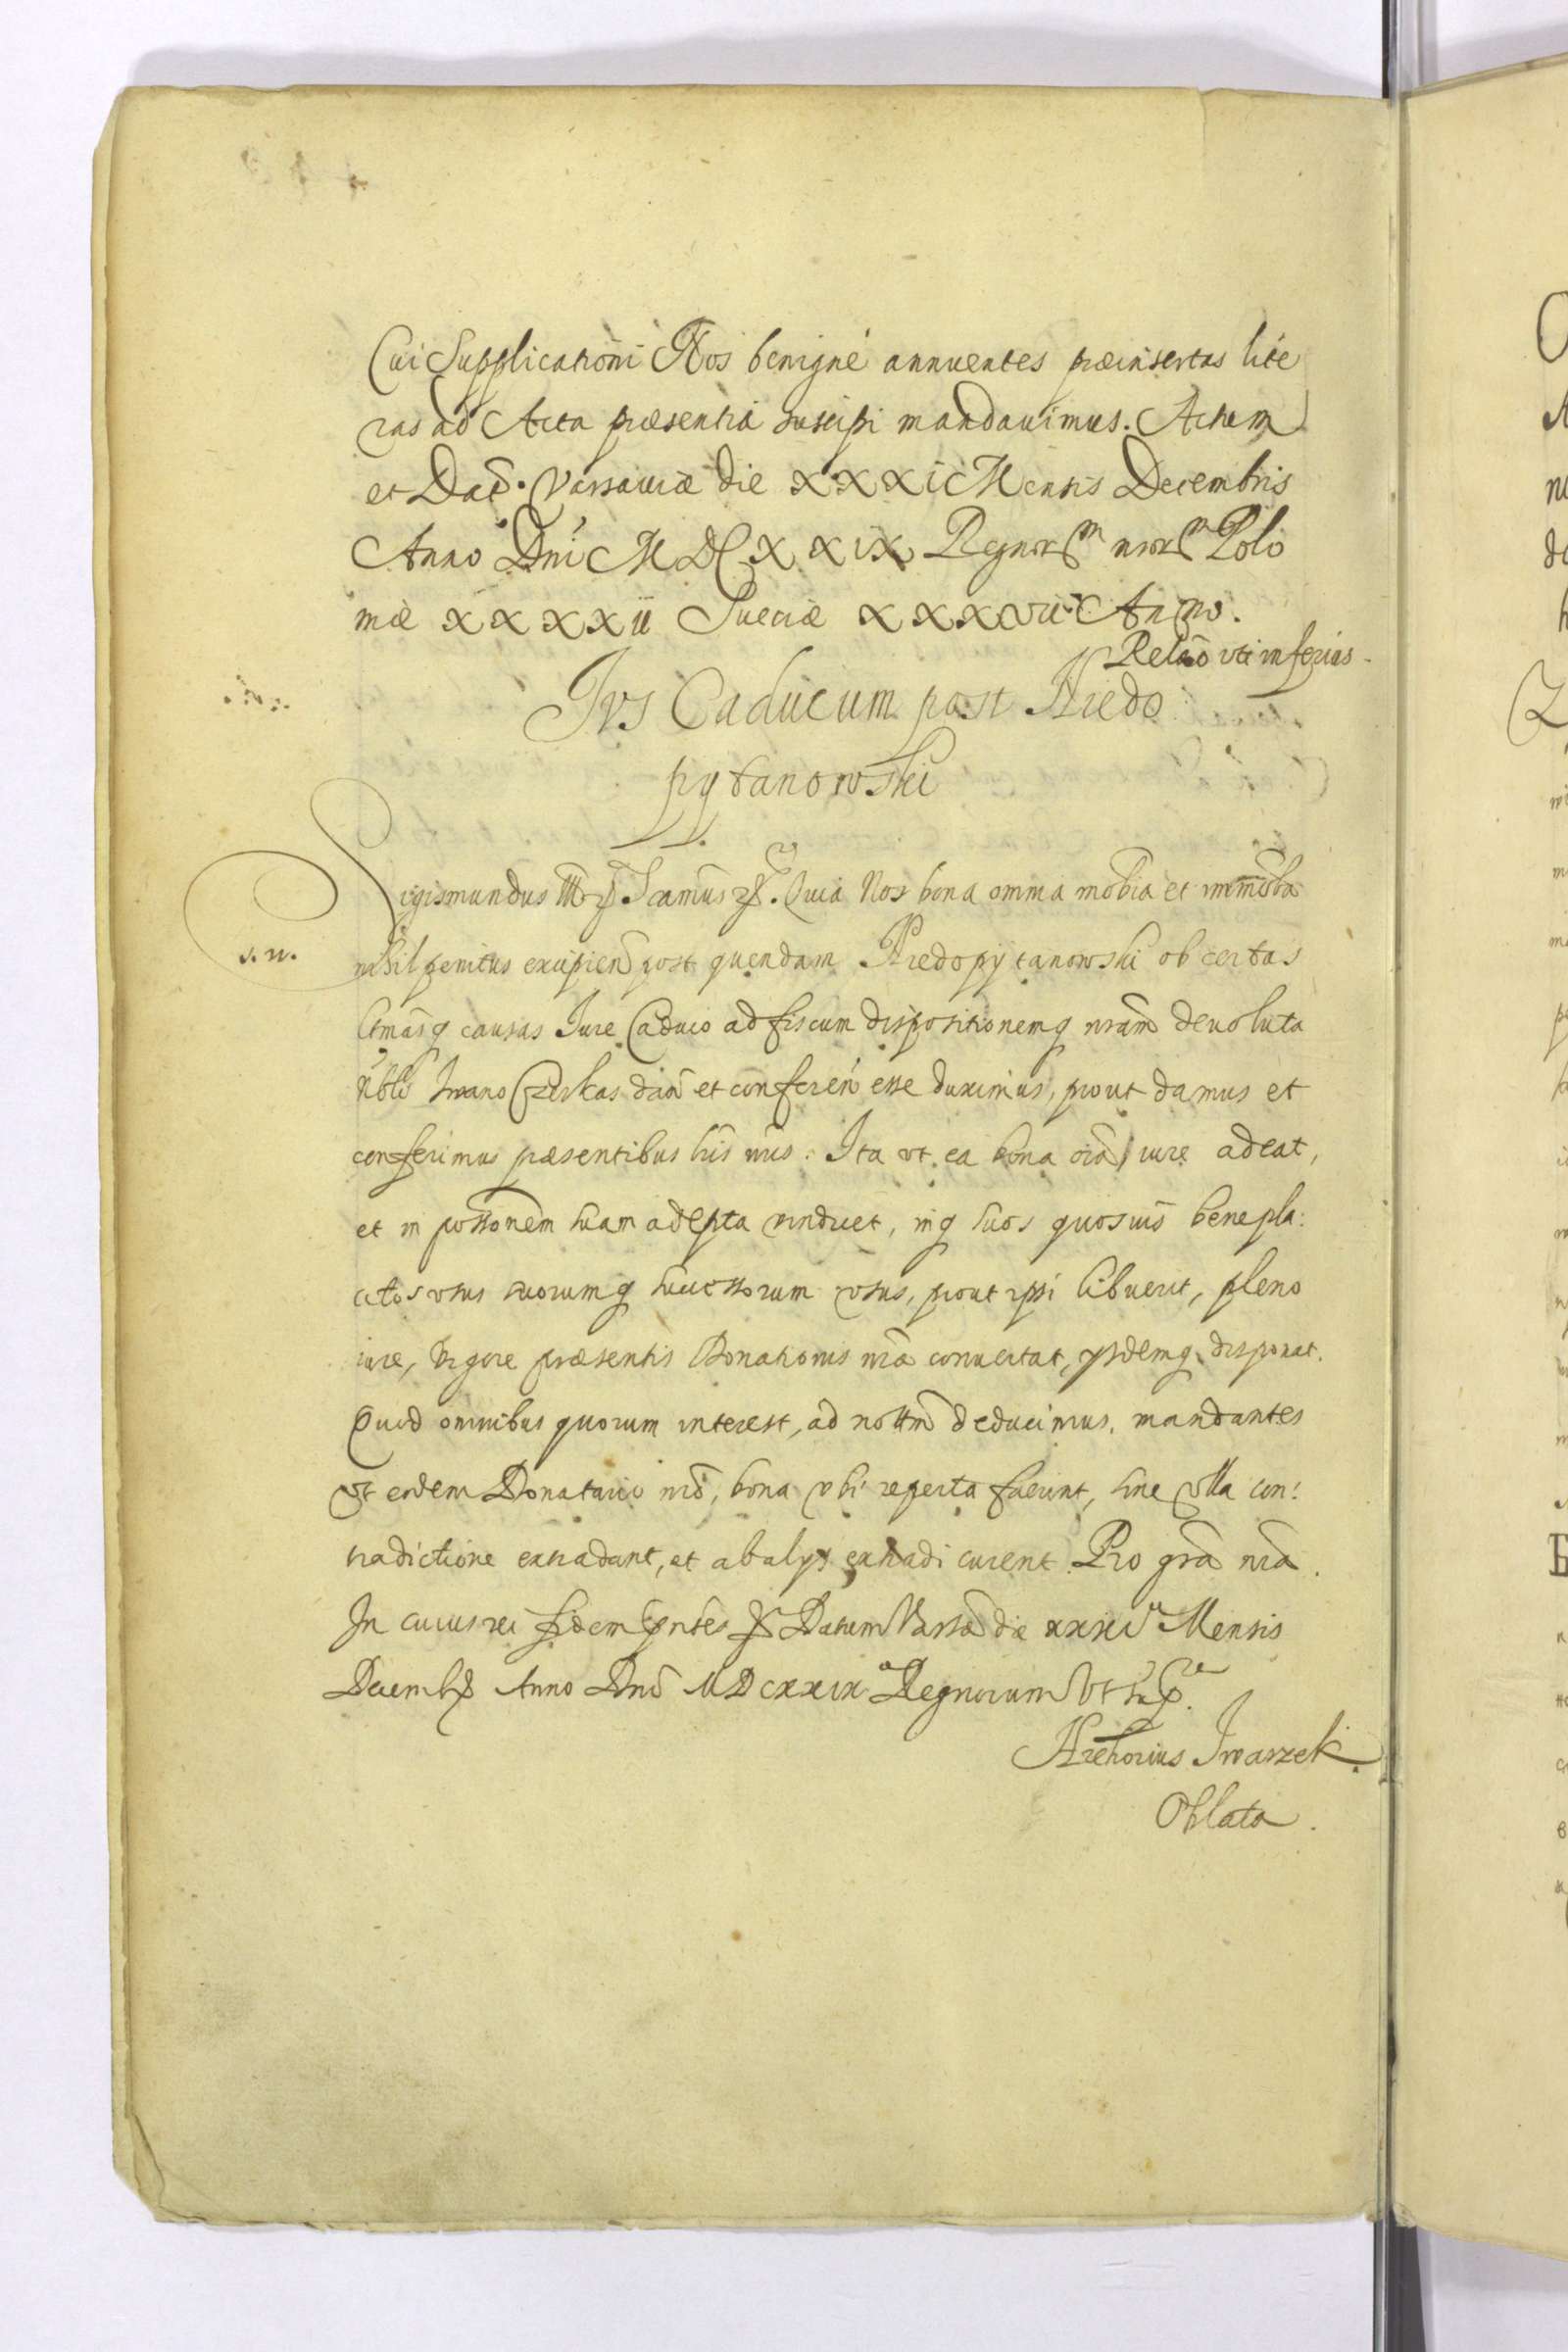 Cui Supplicationi Nos benigne annuentes præinsertas lite
ras ad Acta præsentia suscipi mandauimus. Actum
et Dat. Varsauiæ die XXXI Mensis Decembris
Anno Dni MDCXXIX Regnor nror Polo
niæ XXXXII Sueciæ XXXVII Anno.
Relao vti inferius.
Jvs Caducum post Niedo
pytanowski
Sigismundus III Scamus Quia Nos bona omnia mobia et immoba
s. n.
nihil penitus excipien post quendam Niedopytanowski ob certas
ltmasq causas Iure Caduco ad fiscum dispositionemq nram deuoluta
Nobli Iwano Czerkas dan et conferen esse duximus, prout damus et
conferimus præsentibus lris nris. Ita vt ea bona oia iure adeat,
et in possonem suam adepta vindicet, inq suos quosuis benepla:
citos vsus suorumq successorum vsus, prout ipsi libuerit, pleno
iure, vigore præsentis Donationis nræ conuertat, ysdemq disponat.
Quod omnibus quorum interest, ad notitm deducimus, mandantes
vt eidem Donatario nro, bona vbi reperta fuerint, sine vlla con:
tradictione extradant, et ab alys extradi curent. Pro gra nra.
In cuius rei fidem pntes Datum Varsa die xxxi Mensis
Decemb Anno Dni MDCXXIX Regnorum Vt sup.
Hrehorius Iwaszek.
Oblata.